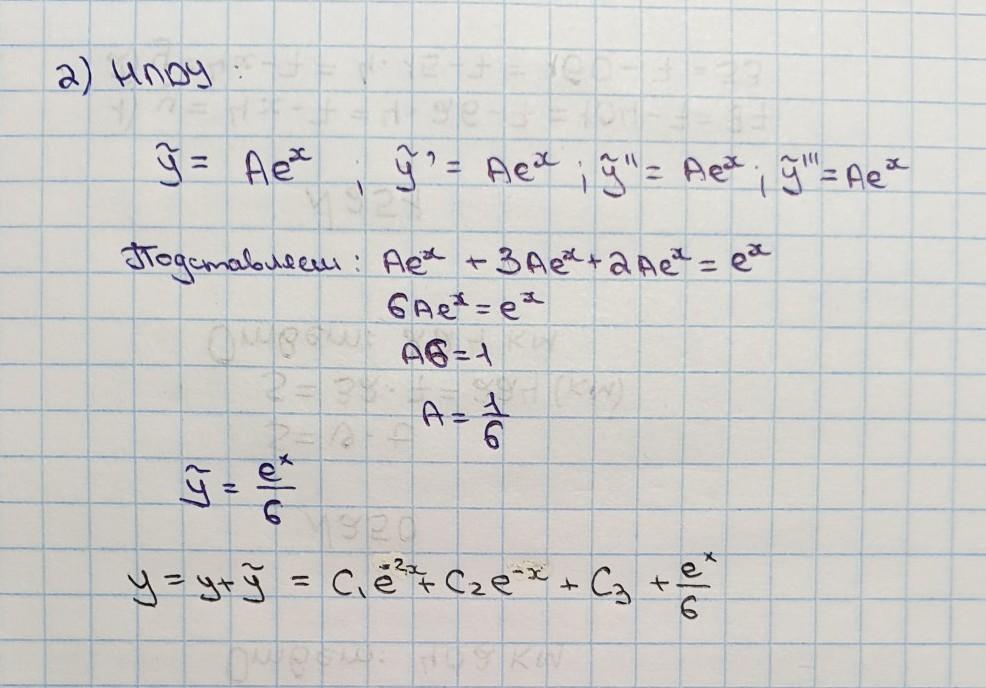 2) НЛДУ :
ỹ = Ae^x ; ỹ' = Ae^x ; ỹ'' = Ae^x ; ỹ''' = Ae^x
Подставляем : Ae^x + 3Ae^x + 2Ae^x = e^x
6Ae^x = e^x
A6 = 1
A = 1/6
ỹ = e^x/6
y = y + ỹ = C₁e^-2x + C₂e^-x + C₃ + e^x/6